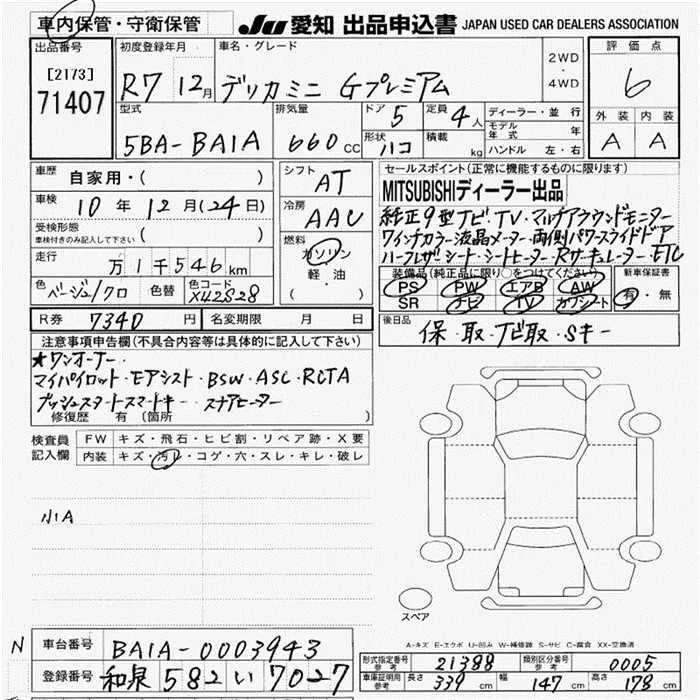 車内保管・守衛保管
JU 愛知 出品申込書 JAPAN USED CAR DEALERS ASSOCIATION
出品番号
[2173]
71407
初度登録年月
R7 12月
車名・グレード
デリカミニ Gプレミアム
2WD
・
4WD
評価点
6
外装 内装
A A
型式
5BA-BA1A
排気量
660 CC
ドア 5
形状 ハコ
定員 4人
積載 kg
ディーラー・並行
モデル年式 年
ハンドル 左・右
車歴 自家用・( )
車検 10年 12月 (24日)
受検形態
車検付きのみ記入して下さい ( )
走行 万1千546km
色 ベージュ/クロ
色替
色コード X42S28
シフト AT
冷房 AAC
燃料
ガソリン
軽・油
( )
R券 7340円
名変期限 月 日
セールスポイント(正常に機能するものに限ります)
MITSUBISHIディーラー出品
純正9型ナビ・TV・マルチアラウンドモニター
ワイドカラー液晶メーター・両側パワースライドドア
ハーフレザーシート・シートヒーター・Rサーキュレーター・ETC
装備品(純正品に限り○をつけてください)
PS PW エアB AW
SR ナビ TV カワシート
新車保証書
有・無
後日品
保・取・ナビ取・Sキー
注意事項申告欄(不具合内容等は具体的に記入して下さい)
★ワンオーナー・
マイパイロット・Eアシスト・BSW・ASC・RCTA
プッシュスタートスマートキー・ステアヒーター
修復歴 有(箇所 )
検査員記入欄
FW キズ・飛石・ヒビ割・リペア跡・X要
内装 キズ・汚レ・コゲ・穴・スレ・キレ・破レ
小A
スペア
A-キズ E-エクボ U-凹み W-補修跡 S-サビ C-腐食 XX-交換済
N
車台番号 BA1A-0003943
登録番号 和泉 582 い 7027
形式指定番号 参考 21388
類別区分番号 参考 0005
車庫証明用 参考 長さ 339cm 幅 147cm 高さ 178cm